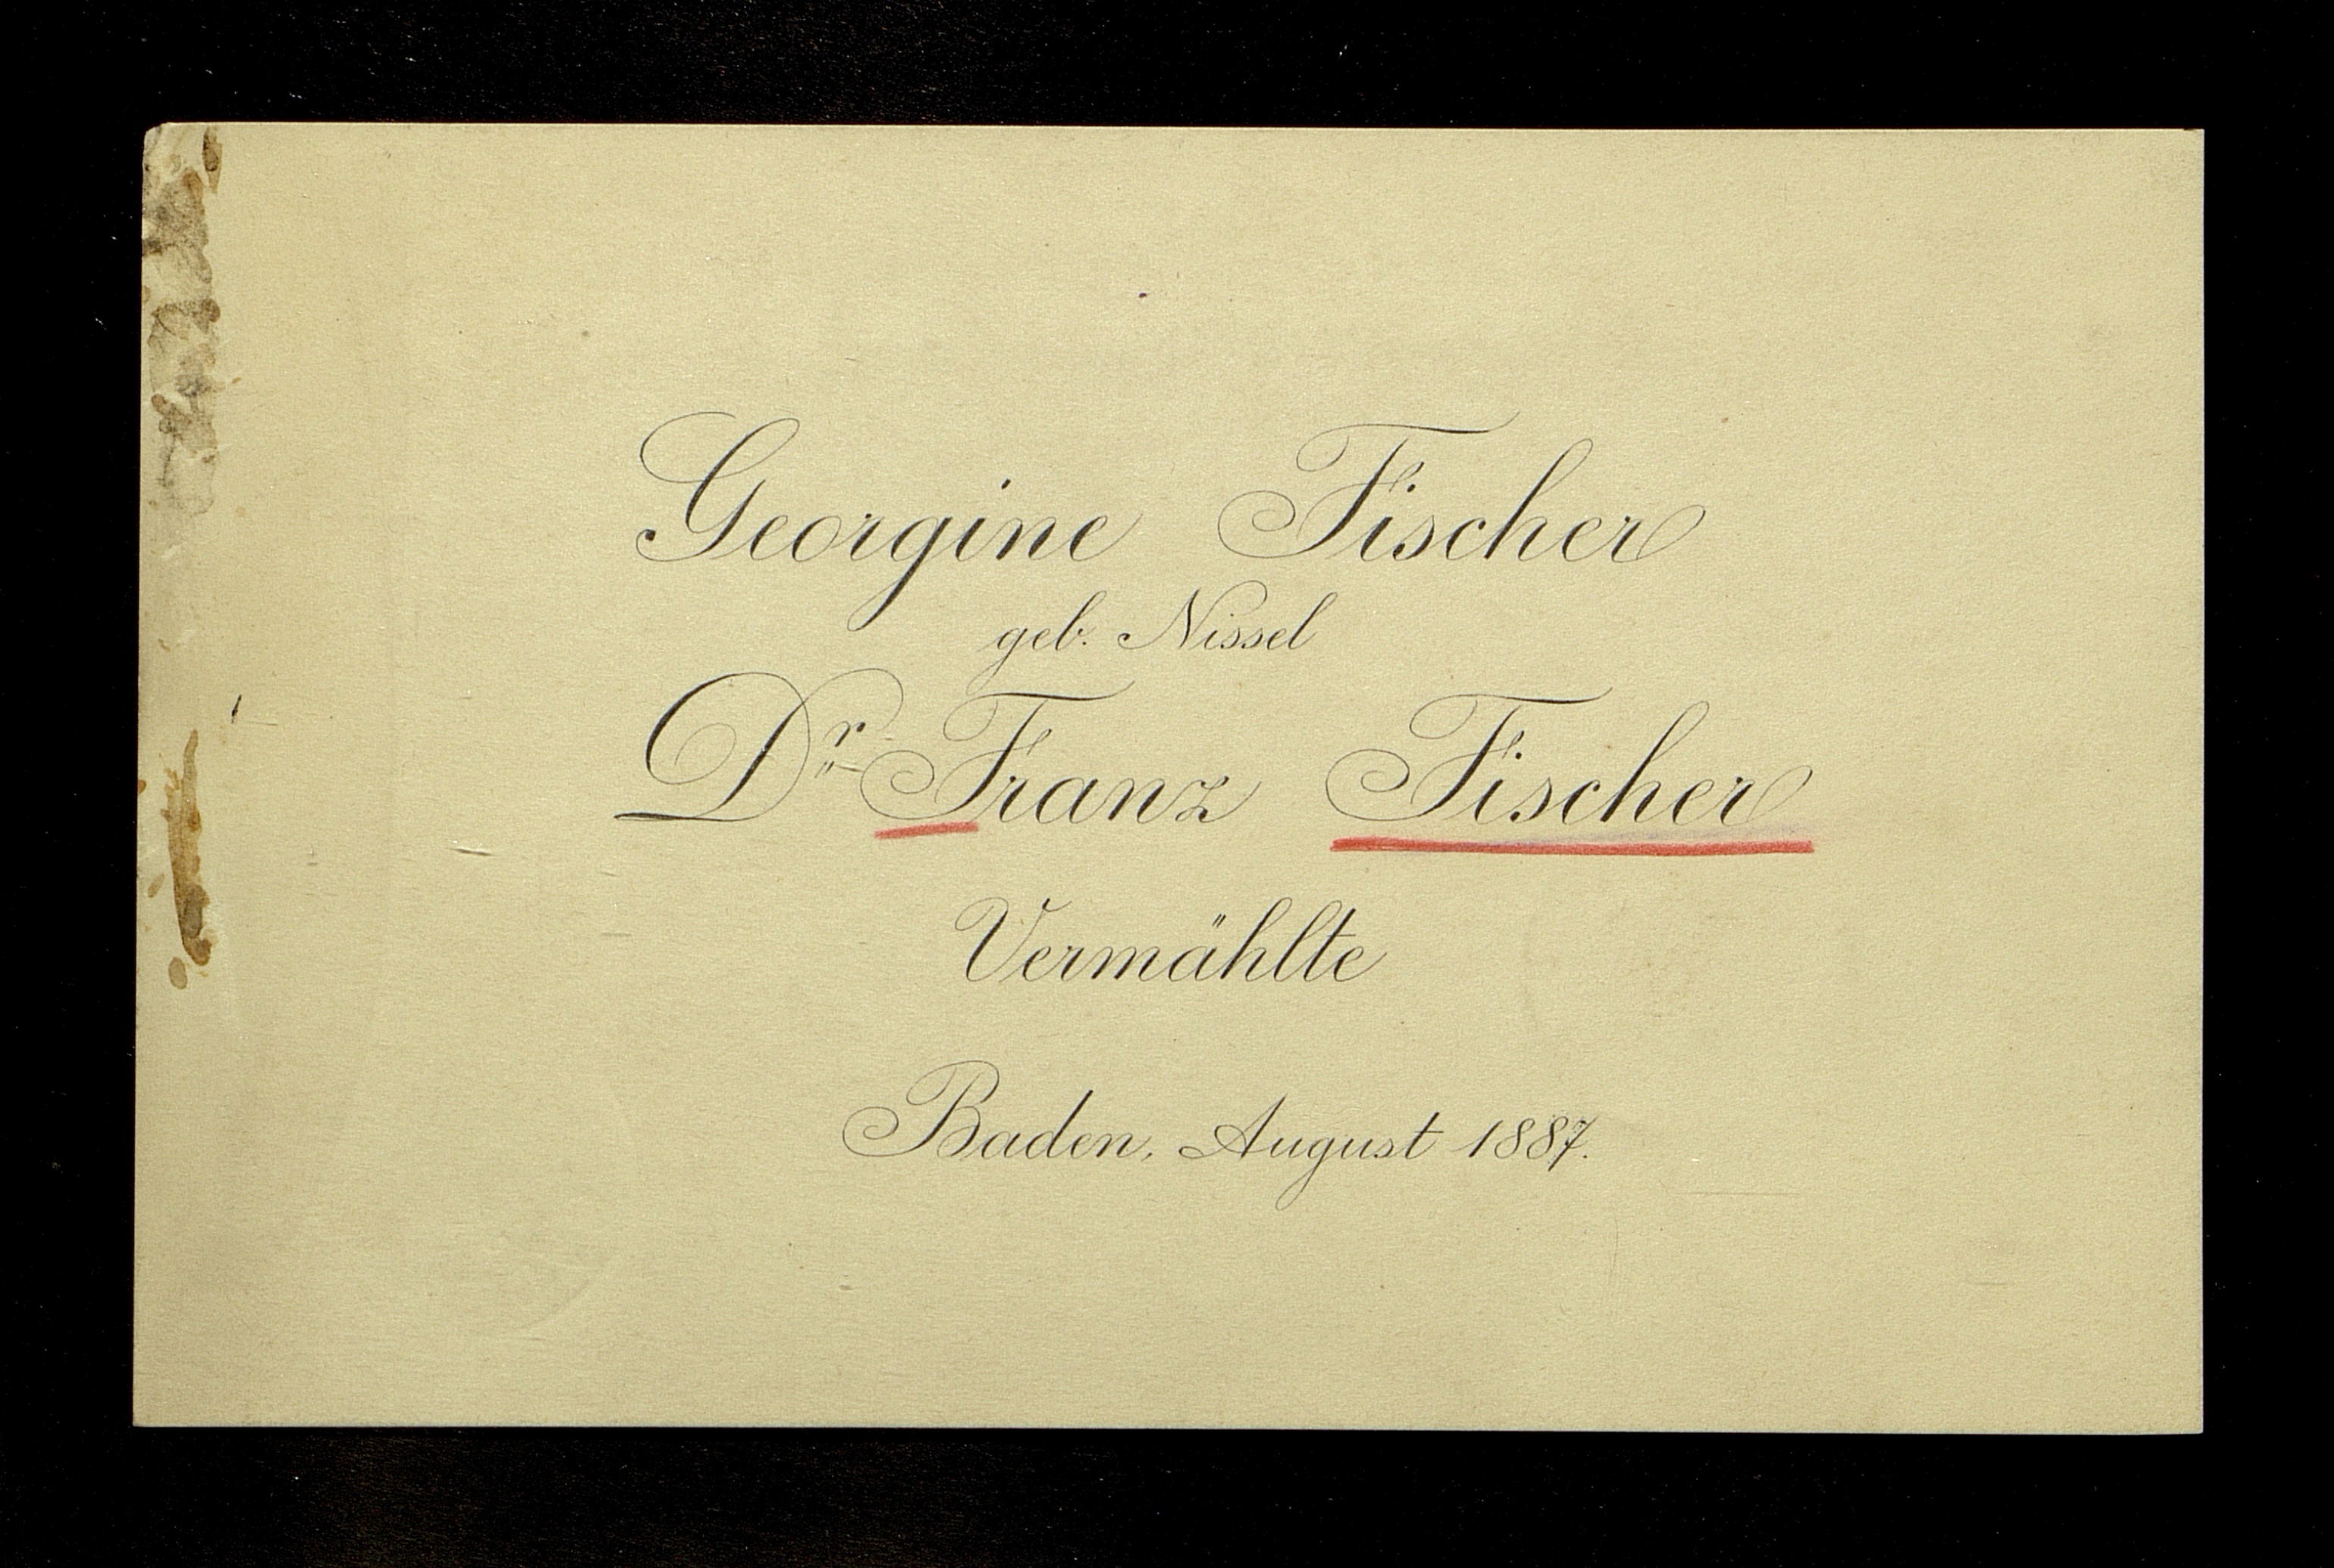 Georgine Fischer
geb. Nissel
Dr. Franz Fischer
Vermählte
Baden, August 1887.